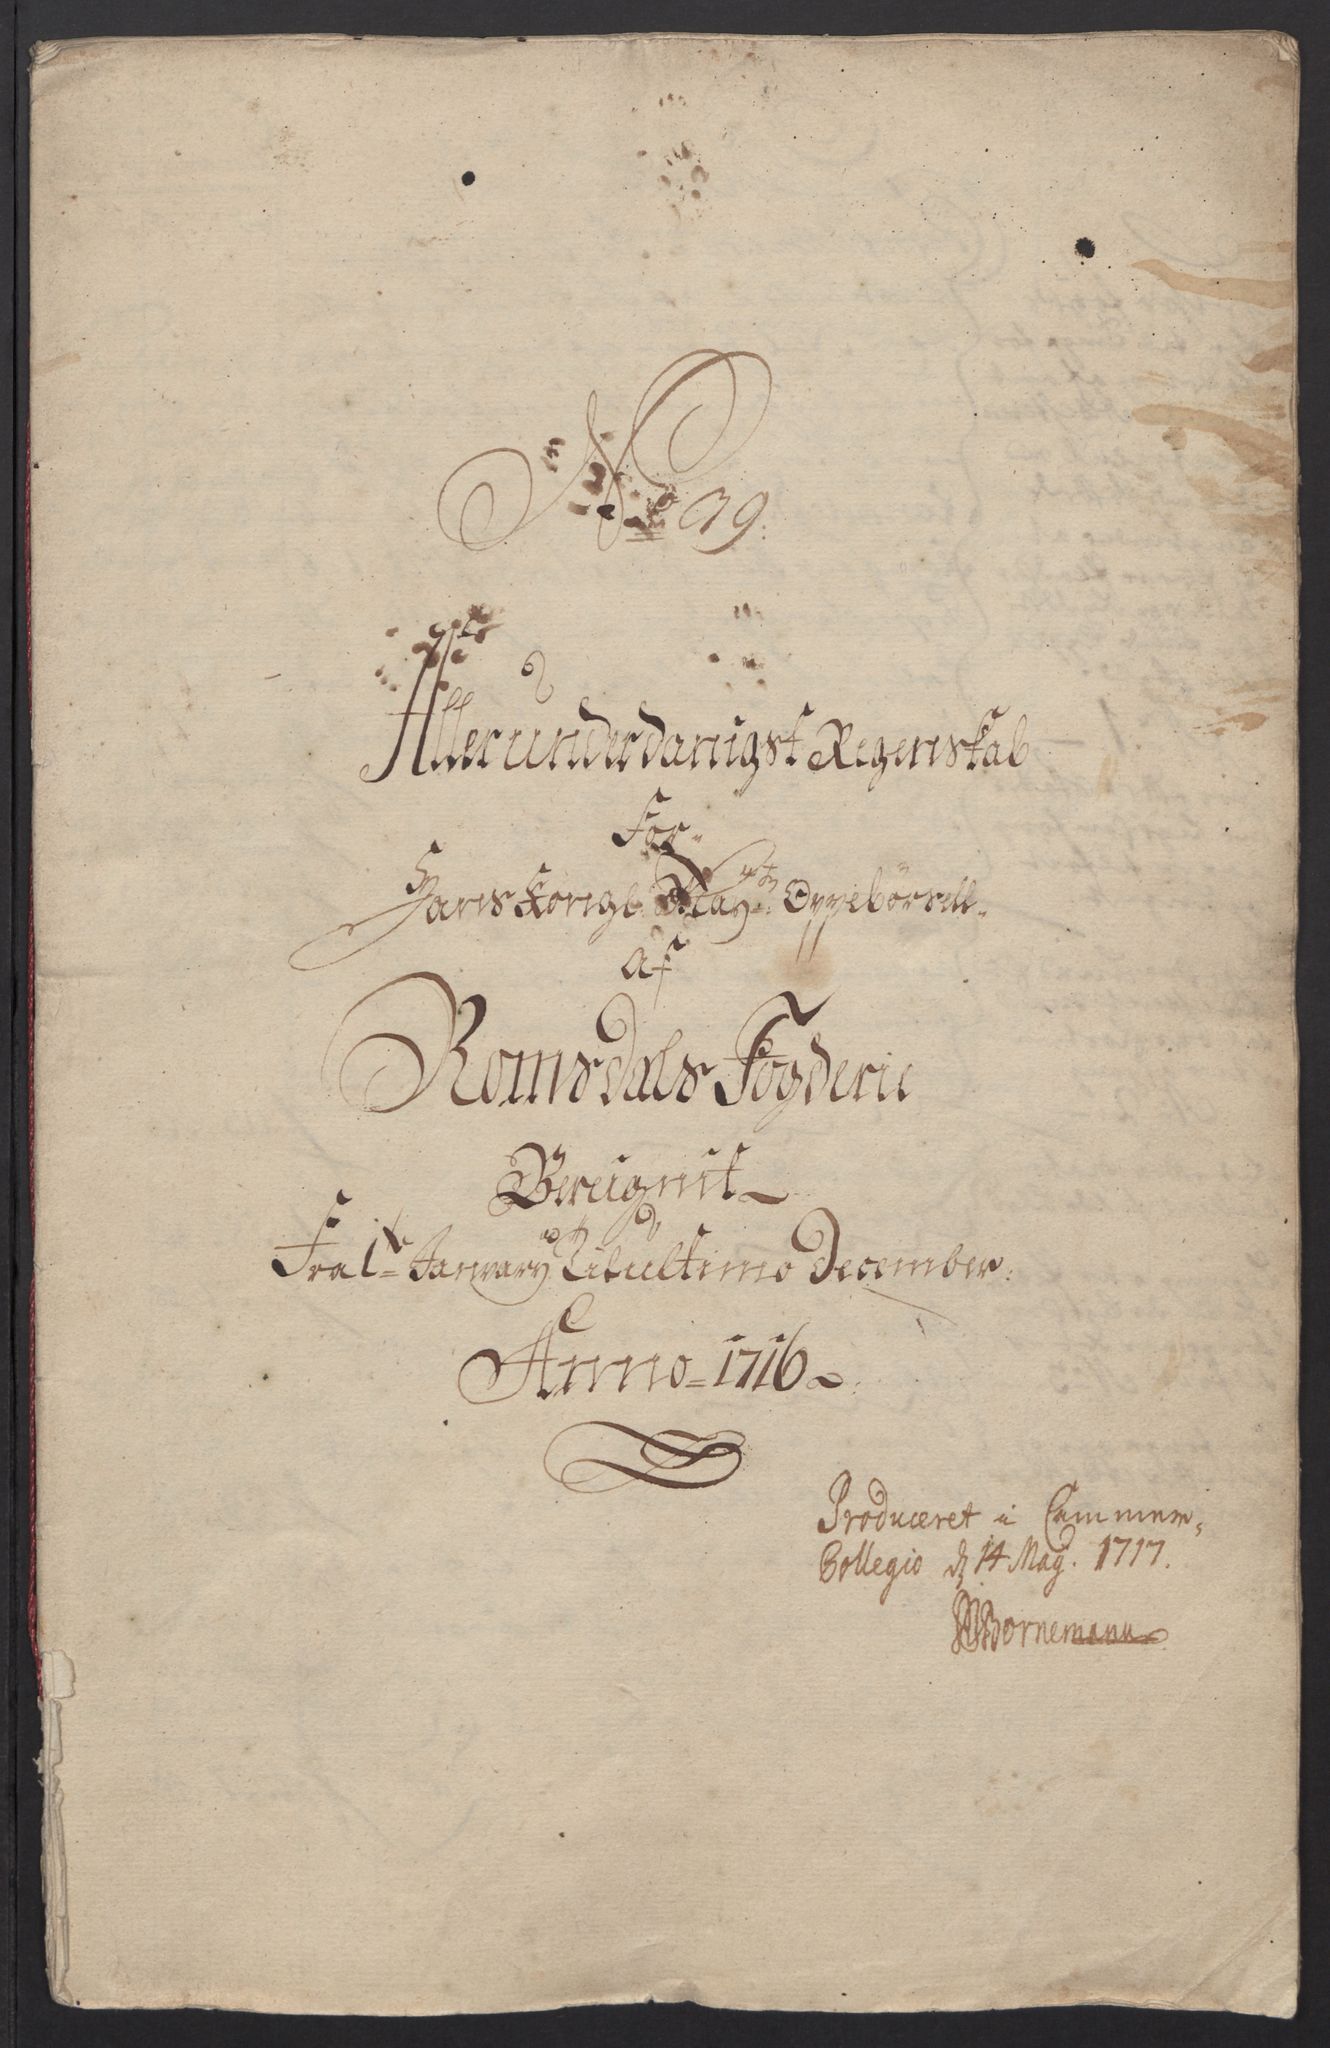 No 39.
Allerunderdanigst Regenskab
For
Hans Kongl. Mayts. Oppebörsell
af
Romsdals Fogderie
Bereignit
Fra 1te January Til ultimo December
Anno 1716
Produceret i Cammer-
Collegio d 14 May. 1717.
Bornemann